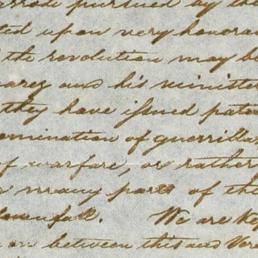 pursued by the
upon very honora
the revolution may be
and his minister
they have issued pate
omination of guerrillas
of warfare, or rather
in many parts of the
downfall. We are kep
on between this and Vera